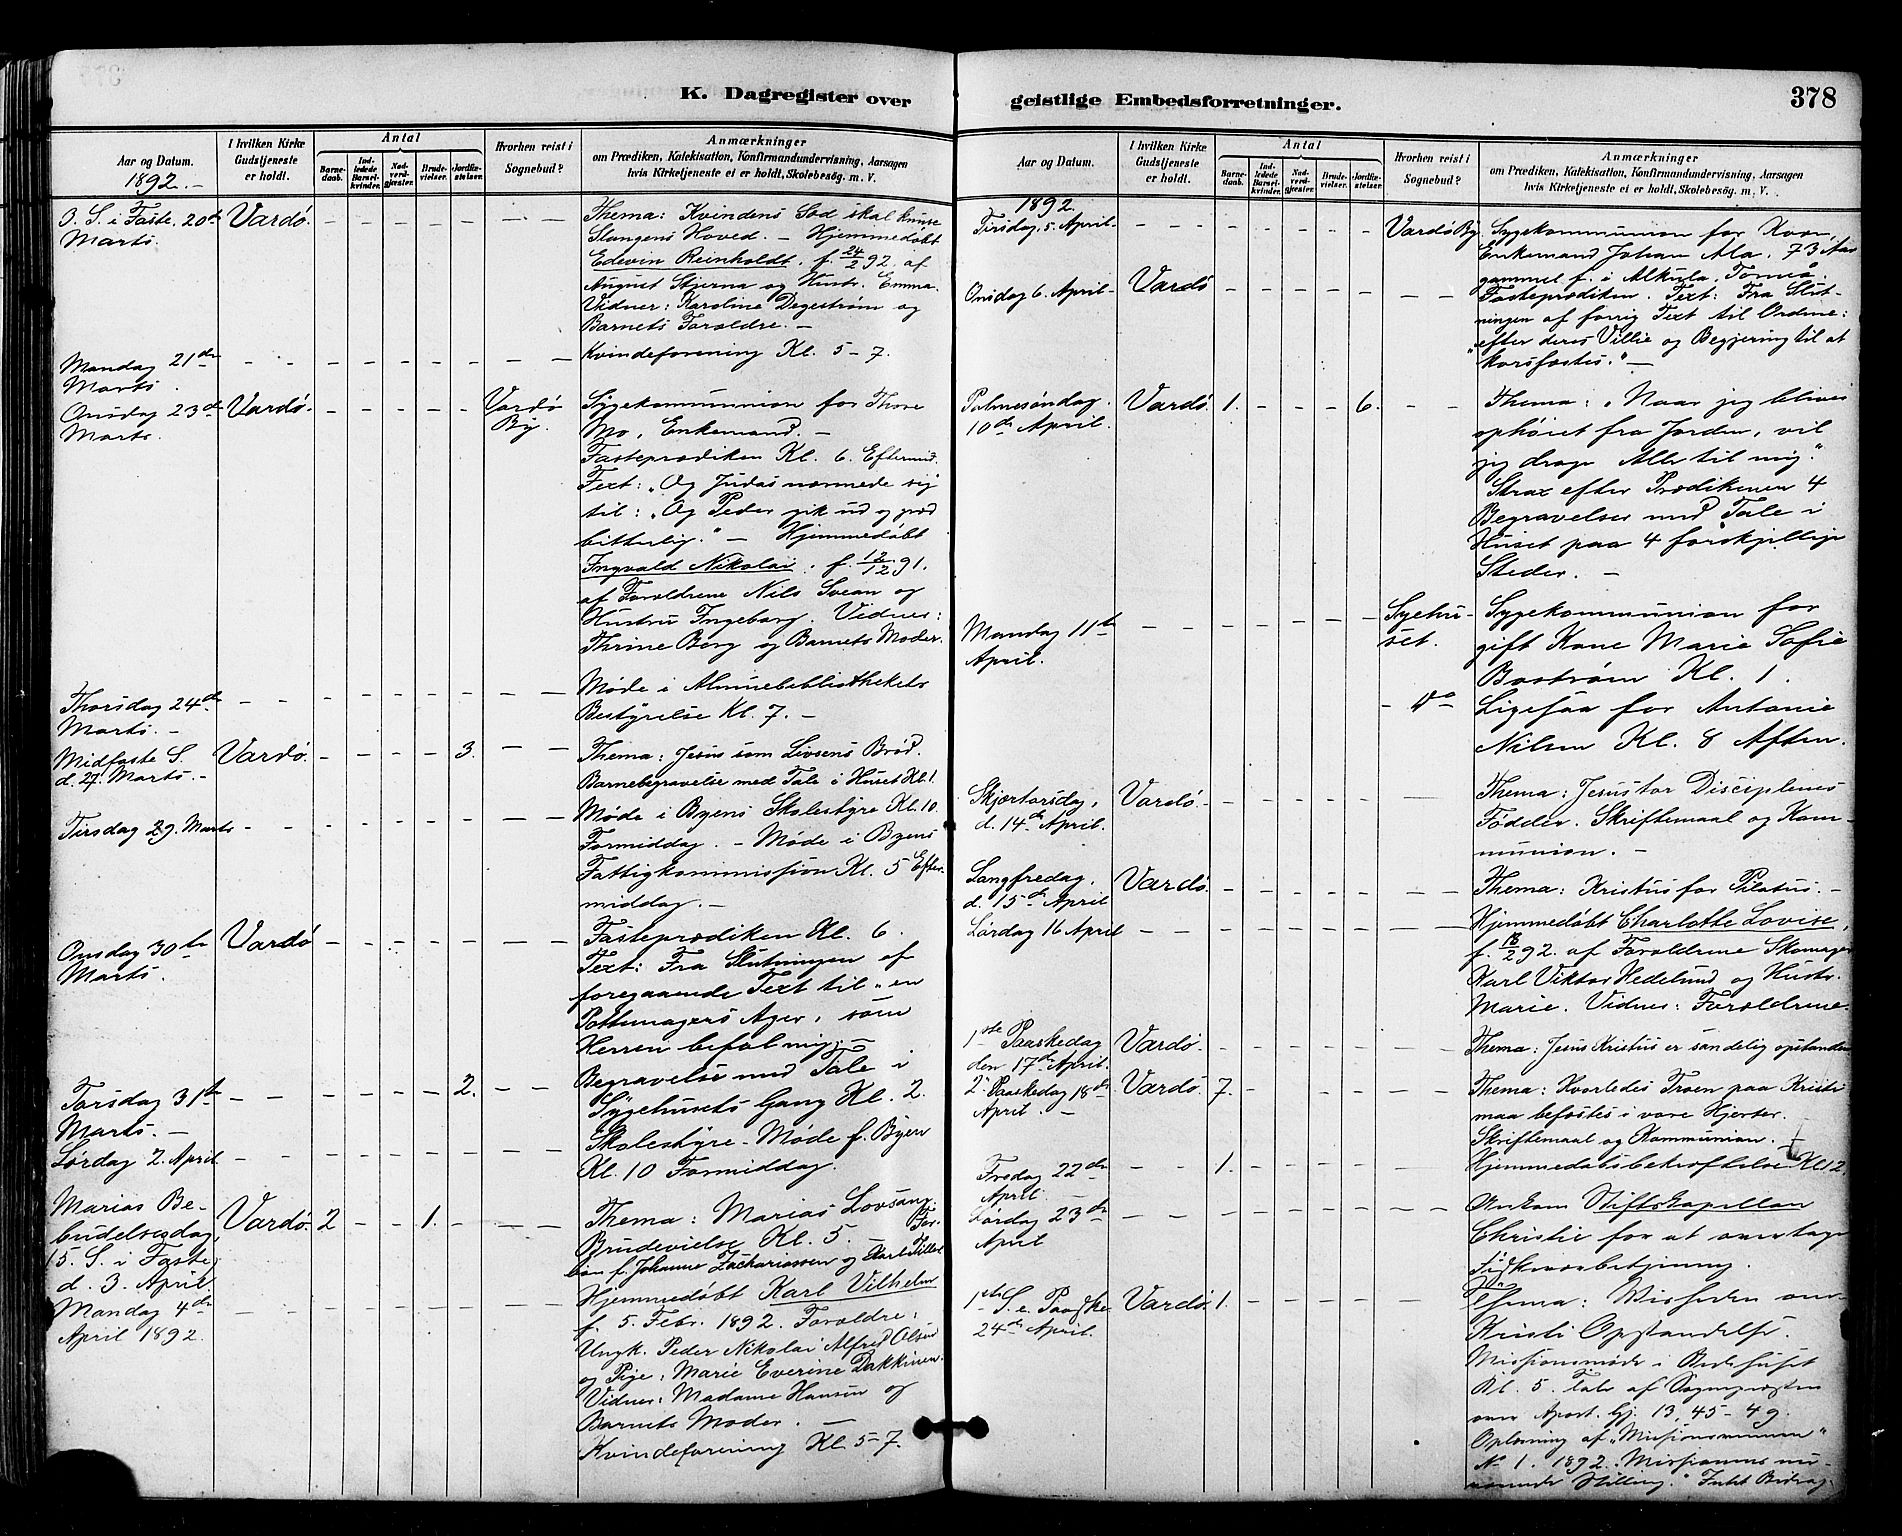 K. Dagregister over
geistlige Embedsforretninger.
378
Aar og Datum.
1892.-
I hvilken Kirke
Gudstjeneste
er holdt.
Antal
Barne-
daab.
Ind-
ledede
Barsel-
kvinder.
Nad-
verd-
gjæster.
Brude-
vielser.
Jordfæ-
stelser.
Hvorhen reist i
Sognebud?
Anmærkninger
om Prædiken, Katekisation, Konfirmandundervisning, Aarsagen
hvis Kirketjeneste ei er holdt, Skolebesög. m. V.
O. S. i Faste. 20de Vardö. Thema: Kvindens Sød skal knuse
Marts. Slangens Hoved. - Hjemmedøbt
Edevin Reinholdt. f. 24/2 92. af
August Stjerna og Hustr. Emma.
Vidner: Karoline Degeström og
Barnets Forældre. -
Mandag 21de Kvindeforening Kl. 5-7.
Marts.
Onsdag 23de Vardö. Vardö Sygekommunion for Thore
Marts. By. Mo, Enkemand. -
Fasteprædiken Kl. 6. Eftermid.
Text: "Og Judas nærmede sig
til: "Og Peder gik ud og græd
bitterlig." - Hjemmedøbt
Ingvald Nikolai. f. 12/12 91.
af Forældrene Nils Svean og
Hustru Ingeborg. Vidner:
Thrine Berg og Barnets Moder.
Thorsdag 24de Møde i Almuebibliothekets
Marts. - Bestyrelse Kl. 7. -
Midfaste S. Vardö. 3. Thema: Jesus som Livsens Brød.
d. 27. Marts. - Barnebegravelse med Tale i Huset Kl. 1.
Tirsdag 29. Marts Møde i Byens Skolestyre Kl. 10
Formiddag. - Møde i Byens
Fattigkommission Kl. 5 Efter-
middag. -
Onsdag 30te Vardö Fasteprædiken Kl. 6.
Marts. Text: Fra Slutningen af
foregaaende Text til "en
Pottemagers Ager, som
Herren befol mig." -
Torsdag 31te 2. Begravelse med Tale i
Marts. - Sygehusets Gang Kl. 2.
Lördag 2. April Skolestyre-Møde f. Byen
Kl. 10 Formiddag.
Marias Be-
budelsesdag, Vardö. 2 1. Thema: Marias Lovsang.
5. S. i Faste Brudevielse Kl. 5. -
d. 3. April. f. Johanne Zachariassen og
Mandag 4de Hjemmedøbt Karl Vilhelm
April 1892. f. 5. Febr. 1892. Forældre:
Ungk. Peder Nikolai Alfred Olsen
og Pige, Marie Everine Dakkinen.
Vidner: Madame Hansen og
Barnets Moder. -
Kvindeforening Kl. 5-7.
Aar og Datum.
1892.
I hvilken Kirke
Gudstjeneste
er holdt.
Antal
Barne-
daab.
Ind-
ledede
Barsel-
kvinder.
Nad-
verd-
gjæster.
Brude-
vielser.
Jordfæ-
stelser.
Hvorhen reist i
Sognebud?
Anmærkninger
om Prædiken, Katekisation, Konfirmandundervisning, Aarsagen
hvis Kirketjeneste ei er holdt, Skolebesög. m. V.
Tirsdag, 5. April Vardö By. Sygekommunion for Kvæn,
Enkemand Johan Ala, 73 Aar
gammel f. i Alkula, Torneå.
Onsdag 6. April- Vardö Fasteprædiken. Text: Fra Slut-
ningen af forrig Text til Ordene:
"efter deres Villie og Begjering til at
korsfæstes." -
Palmesöndag. Vardö. 1. 6. Thema: "Naar jeg bliver
10de April. ophöiet fra Jorden, vil
jeg drage Alle til mig."
Strax efter Prædikenen 4
Begravelser med Tale i
Huset paa 4 forskjellige
Steder. -
Mandag 11te Sygehu- Sygekommunion for
April. set. gift Kone Marie Sofie
Boström Kl. 1.
Do Ligesaa for Antonie
Nilsen Kl. 8 Aften.
Skjærtorsdag, Vardö. Thema: Jesus tor Disciplenes
d. 14de April. Födder. Skriftemaal og Kom-
munion. -
Langfredag, Vardö. Thema: Kristus for Pilatus. -
d. 15de April
Lördag 16 April Hjemmedøbt Charlotte Lovise,
f. 18/2 92. af Forældrene Skomager
Karl Viktor Hedelund og Hustr.
Marie. Vidner: Forældrene.
1ste Paaskedag Vardö. Thema: Jesus Kristus er sandelig opstanden
den 17de April.
2. Paaskedag 18de Vardö. 7. Thema: Hvorledes Troen paa Kristus
April - maa befæstes i vore Hjerter.
Skriftemaal og Kommunion.
Fredag 22de 1. Hjemmedaabsbekræftelse Kl 12
April
Lördag 23de Ankom Stiftskapellan
April Christie for at overtage
Fiskeværbetjening.
1ste S. e. Paaske Vardö. 1. Thema: Visheden om
24de April. Kristi Opstandelse.
Missionsmøde i Bedehuset
Kl. 5. Tale af Sognepræsten
over Apost. Gj. 13, 45-49.
Oplæsning af "
No 1. 1892. Missionens nu-
værende Stilling." Intet Bidrag.